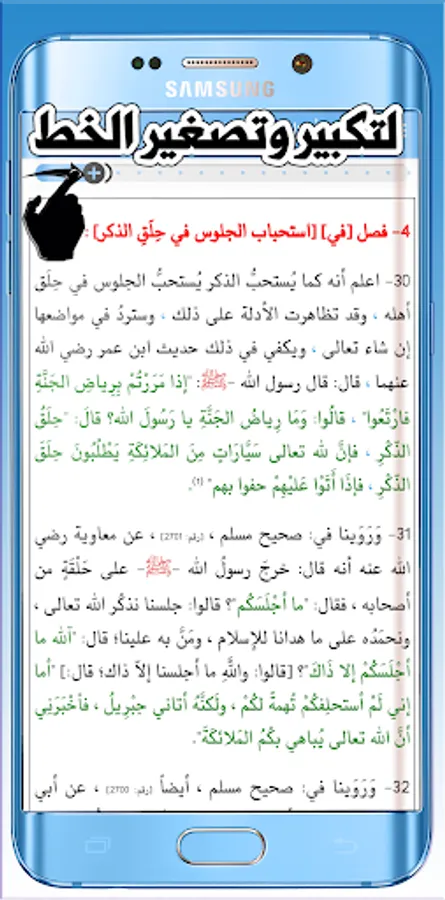 SAMSUNG
لتكبير وتصغير الخط
4- فصل [في] [استحباب الجلوس في حِلَقِ الذكر] :
30- اعلم أنه كما يُستحبُّ الذكر يُستحبُّ الجلوس في حِلَق
أهله ، وقد تظاهرت الأدلة على ذلك ، وستردُ في مواضعها
إن شاء تعالى ، ويكفي في ذلك حديث ابن عمر رضي الله
عنهما ، قال: قال رسول الله -ﷺ-: "إذا مَرَرْتُمْ بِرِياضِ الجَنَّةِ
فارْتَعُوا" ، قالُوا: وَمَا رِياضُ الجَنَّةِ يا رَسُولَ الله؟ قالَ: "حِلَقُ
الذّكْرِ ، فإنَّ لله تعالى سَيَّارَاتٍ مِنَ المَلائِكَةِ يَطْلُبُونَ حِلَقَ
الذّكْرِ ، فإذَا أَتَوْا عَلَيْهِمْ حفوا بهم" (1).
31- وَرَوَينا في: صحيح مسلم ، [رقم: 2701] ، عن معاوية رضي
الله عنه أنه قال: خرجَ رسولُ الله -ﷺ- على حَلْقَةٍ من
أصحابه ، فقال: "ما أجْلَسَكُم"؟ قالوا: جلسنا نذكُر الله تعالى ،
ونحمَدُه على ما هدانا للإسلام ، ومَنَّ به علينا؛ قال: "آلله ما
أجْلَسَكُمْ إلا ذَاكَ"؟ [قالوا: واللَّهِ ما أجلسنا إلاّ ذاك؛ قال:] "أما
إني لَمْ أستحلِفْكُمْ تُهمةً لكُمْ ، ولَكنَّهُ أتاني جِبْرِيلُ ، فأخْبَرَنِي
أنَّ الله تعالى يُباهي بكُمُ المَلائكَةَ".
32- وَرَوَينا في: صحيح مسلم ، أيضاً [رقم: 2700] ، عن أبي